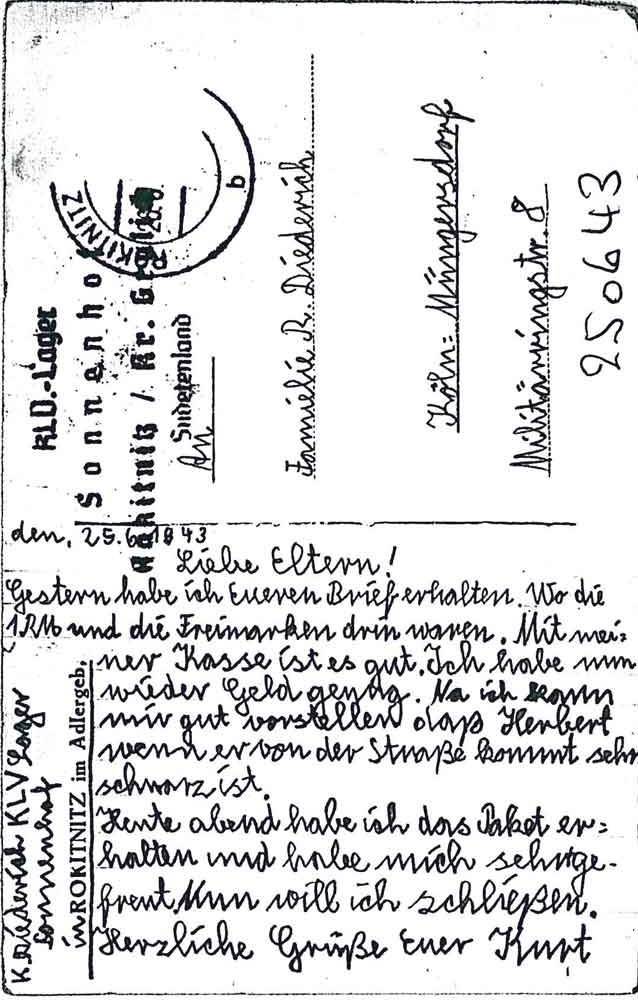 KLV.-Lager
Sonnenhof
Rokitnitz / Kr. Grulich
Sudetenland
ROKITNITZ
b
An
Familie R. Diederich
Köln= Müngersdorf
Militärringstr. 8
250643
den, 25.6.1943
Liebe Eltern!
Gestern habe ich Eueren Brief erhalten. Wo die
1 RM und die Freimarken drin waren. Mit mei=
ner Kasse ist es gut. Ich habe nun
wieder Geld genug. Na ich kann
mir gut vorstellen daß Herbert
wenn er von der Straße kommt sehr
schwarz ist.
Heute abend habe ich das Paket er=
halten und habe mich sehr ge-
freut. Nun will ich schließen.
Herzliche Grüße Euer Kurt
K. Diederich KLV Lager
Sonnenhof
in ROKITNITZ im Adlergeb.